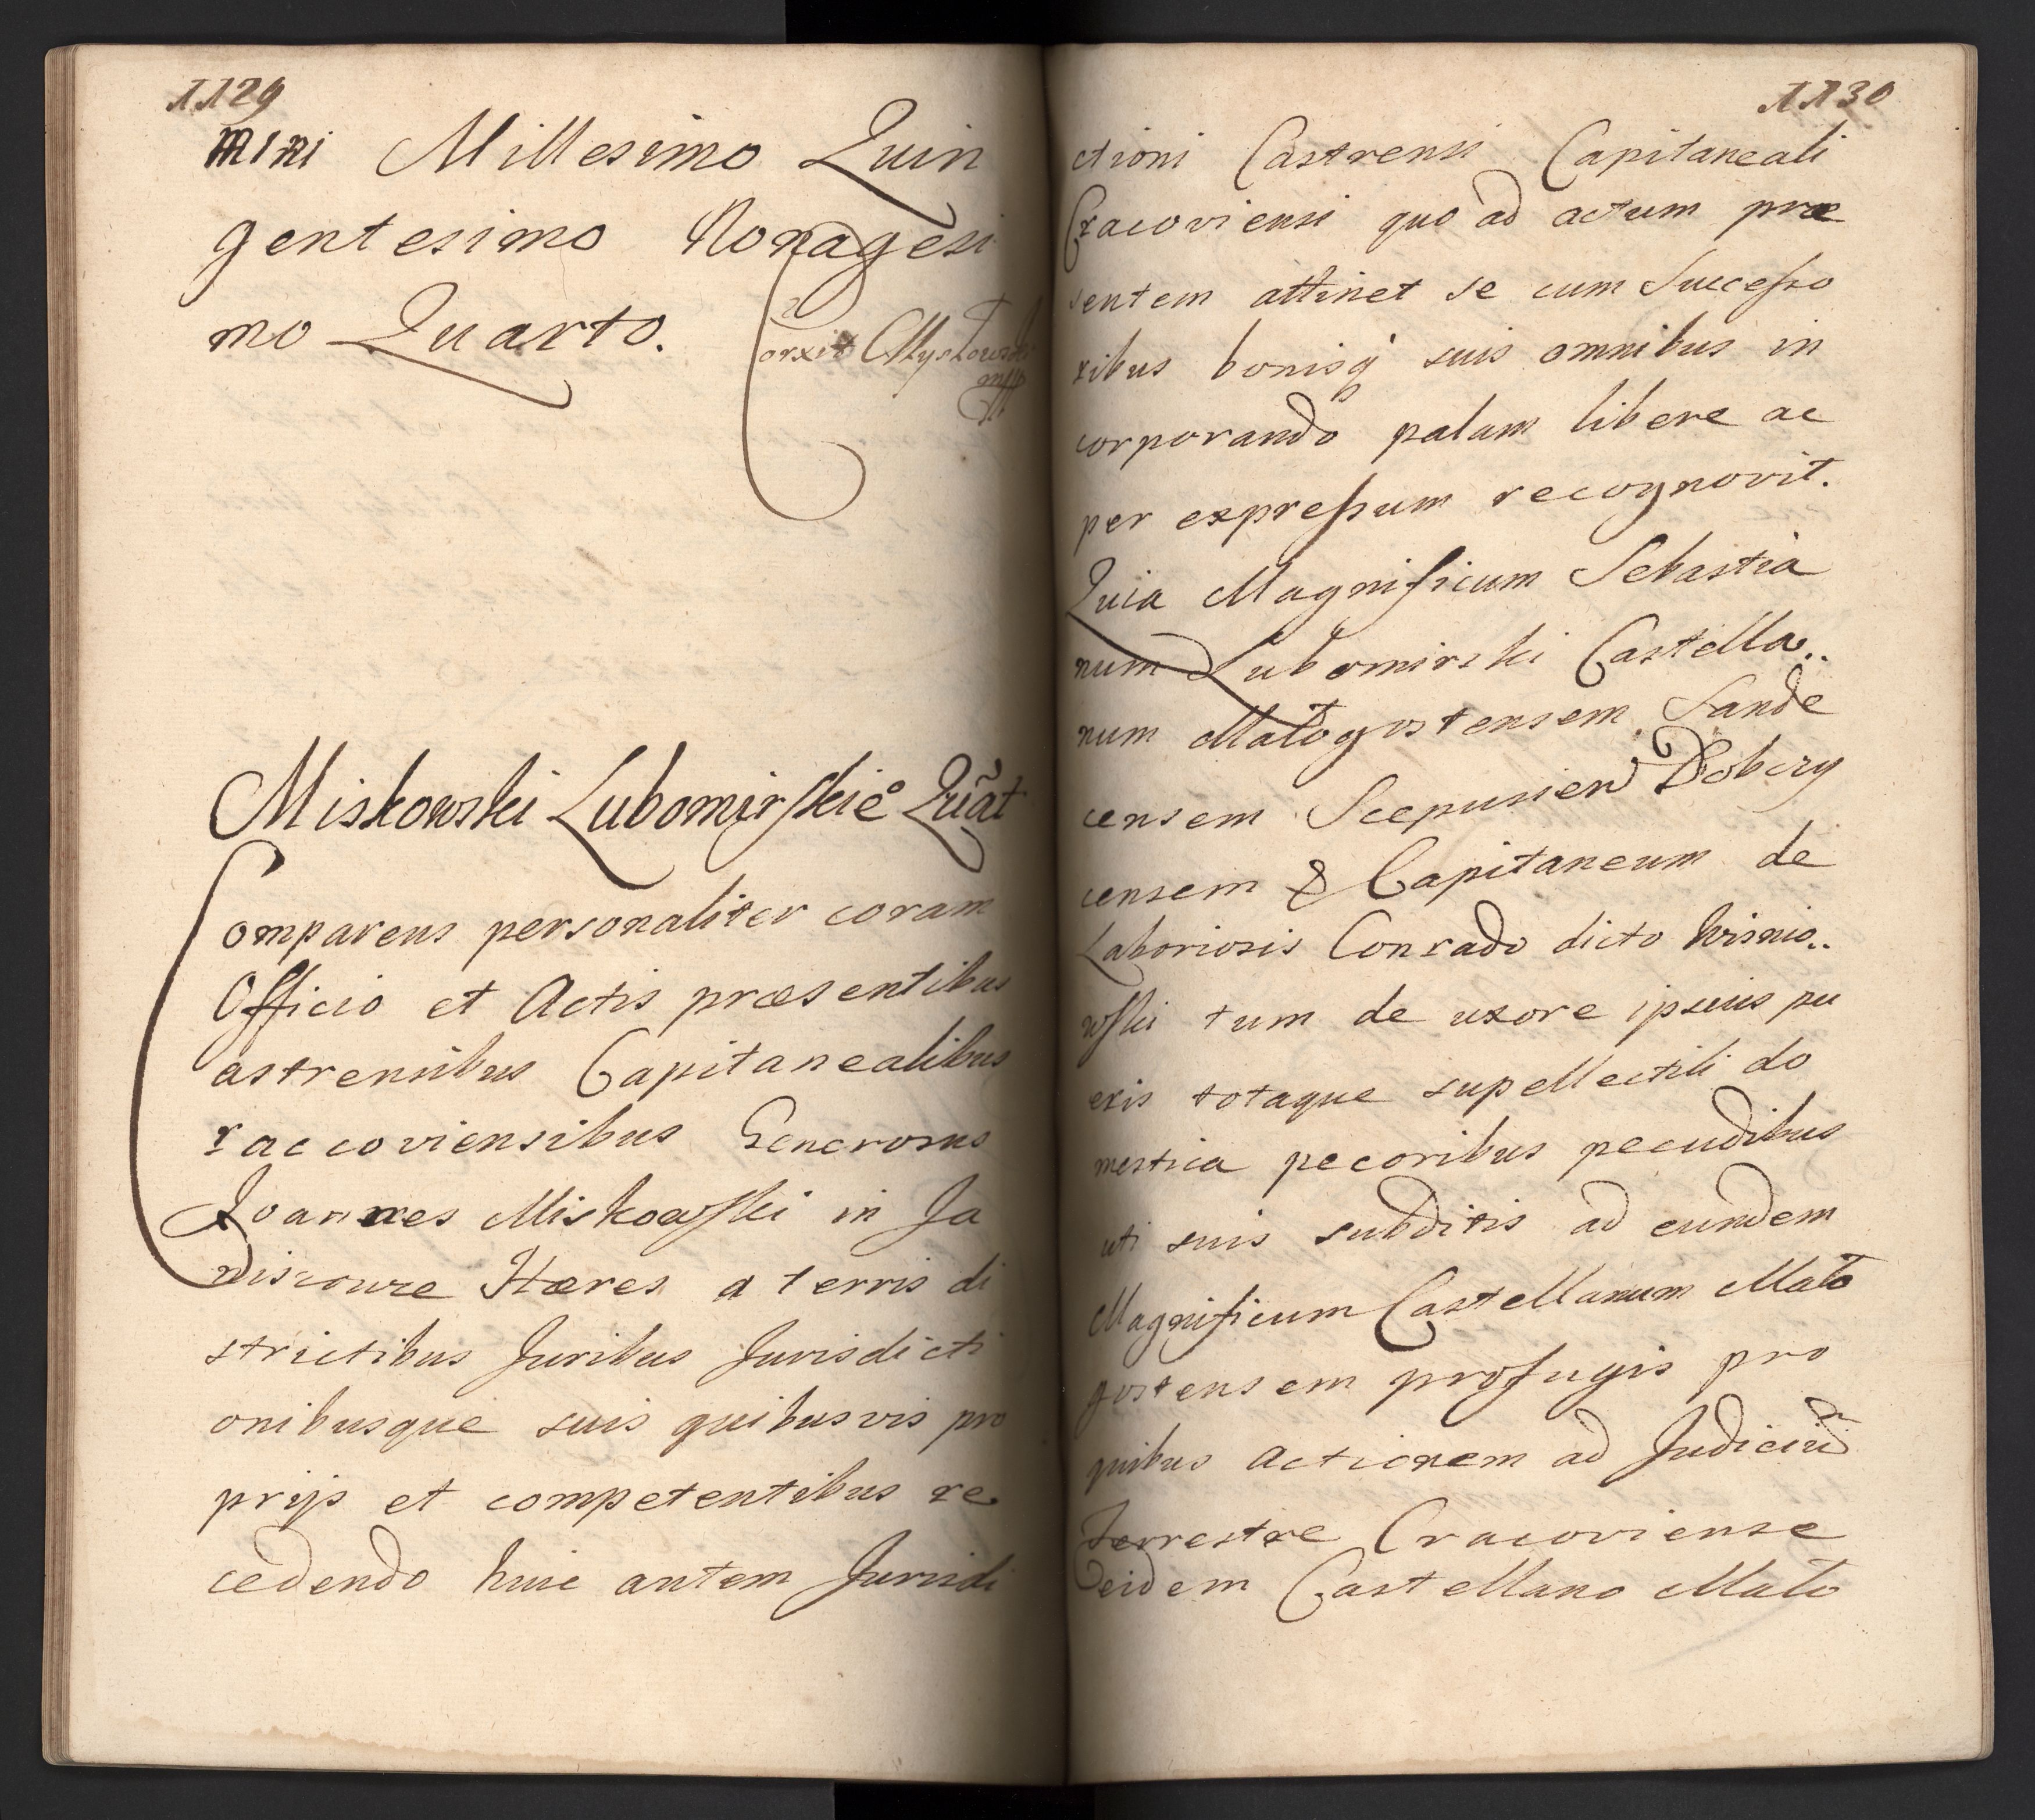 1129
mini Millesimo Quin
gentesimo Nonagesi
mo Quarto.
Corxit Myskowski
mpp
Miskowski Lubomirskie° Quãt
Comparens personaliter coram
Officio et Actis præsentibus
Castrensibus Capitanealibus
Craccoviensibus Generosus
Joannes Miskowski in Ja
Hæres a terris di
strictibus Juribus Jurisdicti
onibusque suis quibusvis pro
prijs et competentibus re
cedendo huic autem Jurisdi
1130
ctioni Castrensi Capitaneali
Cracoviensi quo ad actum præ
sentem attinet se cum Successo
ribus bonisq suis omnibus in
corporando palam libere ac
per expressum recognovit.
Quia Magnificum Sebastia
num Lubomirski Castella..
num Małogostensem Sande
censem Scepusien Dobczy
censem & Capitaneum de
Laboriosis Conrado dicto Wisnio..
wski tum de uxore ipsius pu
eris totaque supellectili do
mestica pecoribus pecudibus
uti suis subditis ad eundem
Magnificum Castellanum Mało
gostensem profugis pro
quibus actionem ad Judiciũ
Terrestre Cracoviense
eidem Castellano Mało